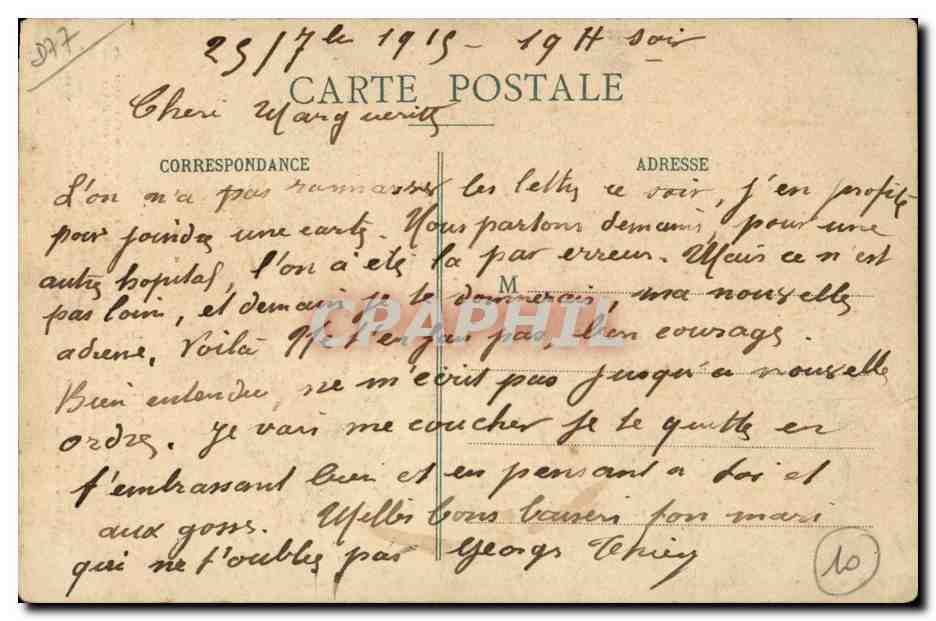 D77
25/7bre 1915 - 19 H soir
CARTE POSTALE
Cheri Marguerite
CORRESPONDANCE
ADRESSE
L'on n'a pas rammasser les lettres ce soir, j'en profite
pour joindre une carte. Nous partons demain, pour une
autre hopital, l'on a été la par erreur. Mais ce n'est
M
pas loin, et demain je te donnerais, ma nouvelle
CPAPHIL
adresse. Voilà Ne t'en fais pas, bien courage.
Bien entendu, ne m'écrit pas jusqu'a nouvelle
ordre. Je vais me coucher je te quitte en
t'embrassant bien et en pensant a toi et
aux goss. Milles bons baisers ton mari
qui ne t'oublis pas Georges Thiery
10